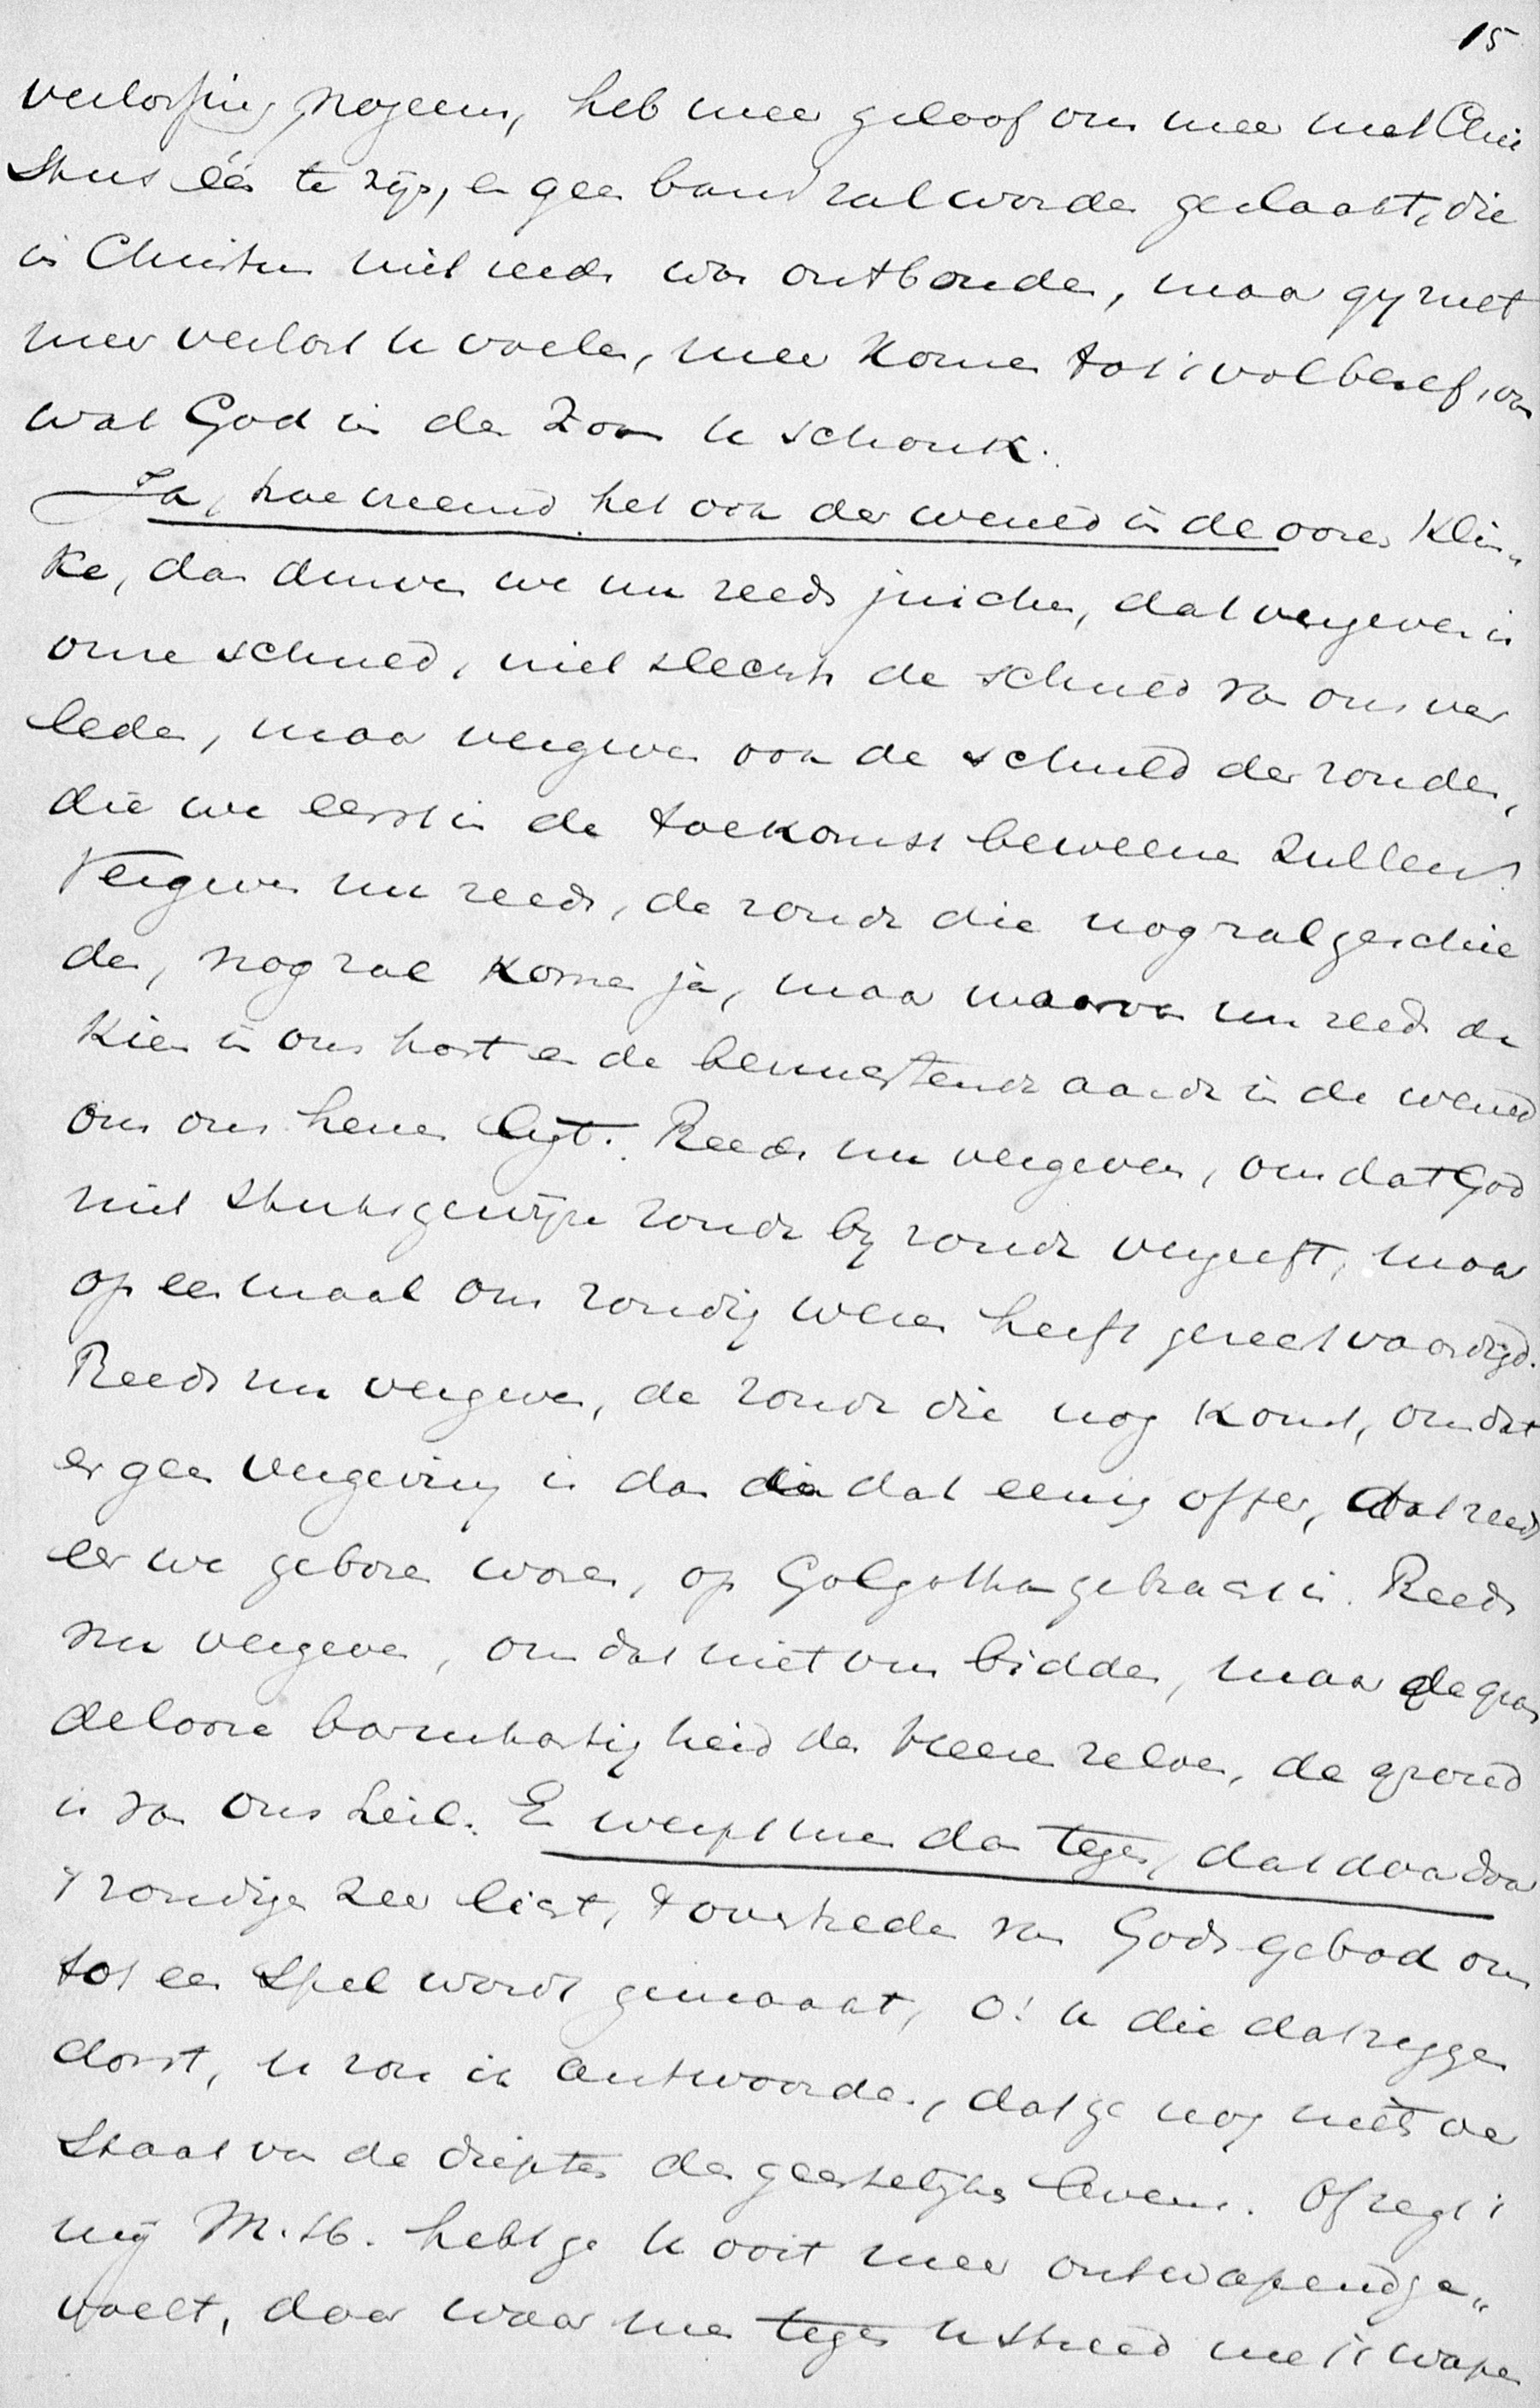 15
verlossing nogeens, heb meer geloof om meer met Chri
stus één te zijn, en geen band zal worden geslaakt, die
in Christus niet reeds was ontbonden, maar gy zult
meer verlost u voelen, meer komen tot 't volbesef, van
wat God in den Zoon u schonk.
Ja, hoe vreemd het ook der wereld in de ooren klin„
ke, dan durven we nu reeds juichen, dat vergeven is
onze schuld, niet slechts de schuld van ons ver
leden, maar vergeven ook de schuld der zonden,
die we eerst in de toekomst beweenen zullen!
Vergeven nu reeds, de zonde die nog zal geschie
den, nog zal komen ja, maar waarvan nu reeds de
kiem in ons hart en de bevruchtende aarde in de wereld
om ons henen ligt. Reeds nu vergeven, omdat God
niet stuksgewijze zonde by zonde vergeeft, maar
op eenmaal ons zondig wezen heeft gerechtvaardigd.
Reeds nu vergeven, de zonde die nog komt, omdat
er geen vergeving is dan in dat eenig offer, dat reeds
eer we geboren waren, op Golgotha gebracht is. Reeds
nu vergeven, omdat niet ons bidden, maar de gron
delooze barmhartigheid des Heeren zelve, de grond
is van ons heil. En werpt men dan tegen, dat daardoor
't zondigen zeer licht, 't overtreden van Gods gebod ons
tot een spel wordt gemaakt, o! u die dat zeggen
dorst, u zou ik antwoorden, dat ge nog niets ver
staat van de diepten des geestelijken levens. Of zegt 't
mij M. H. hebt ge u ooit meer ontwapend ge„
voelt, dan waar men tegen u streed met 't wapen